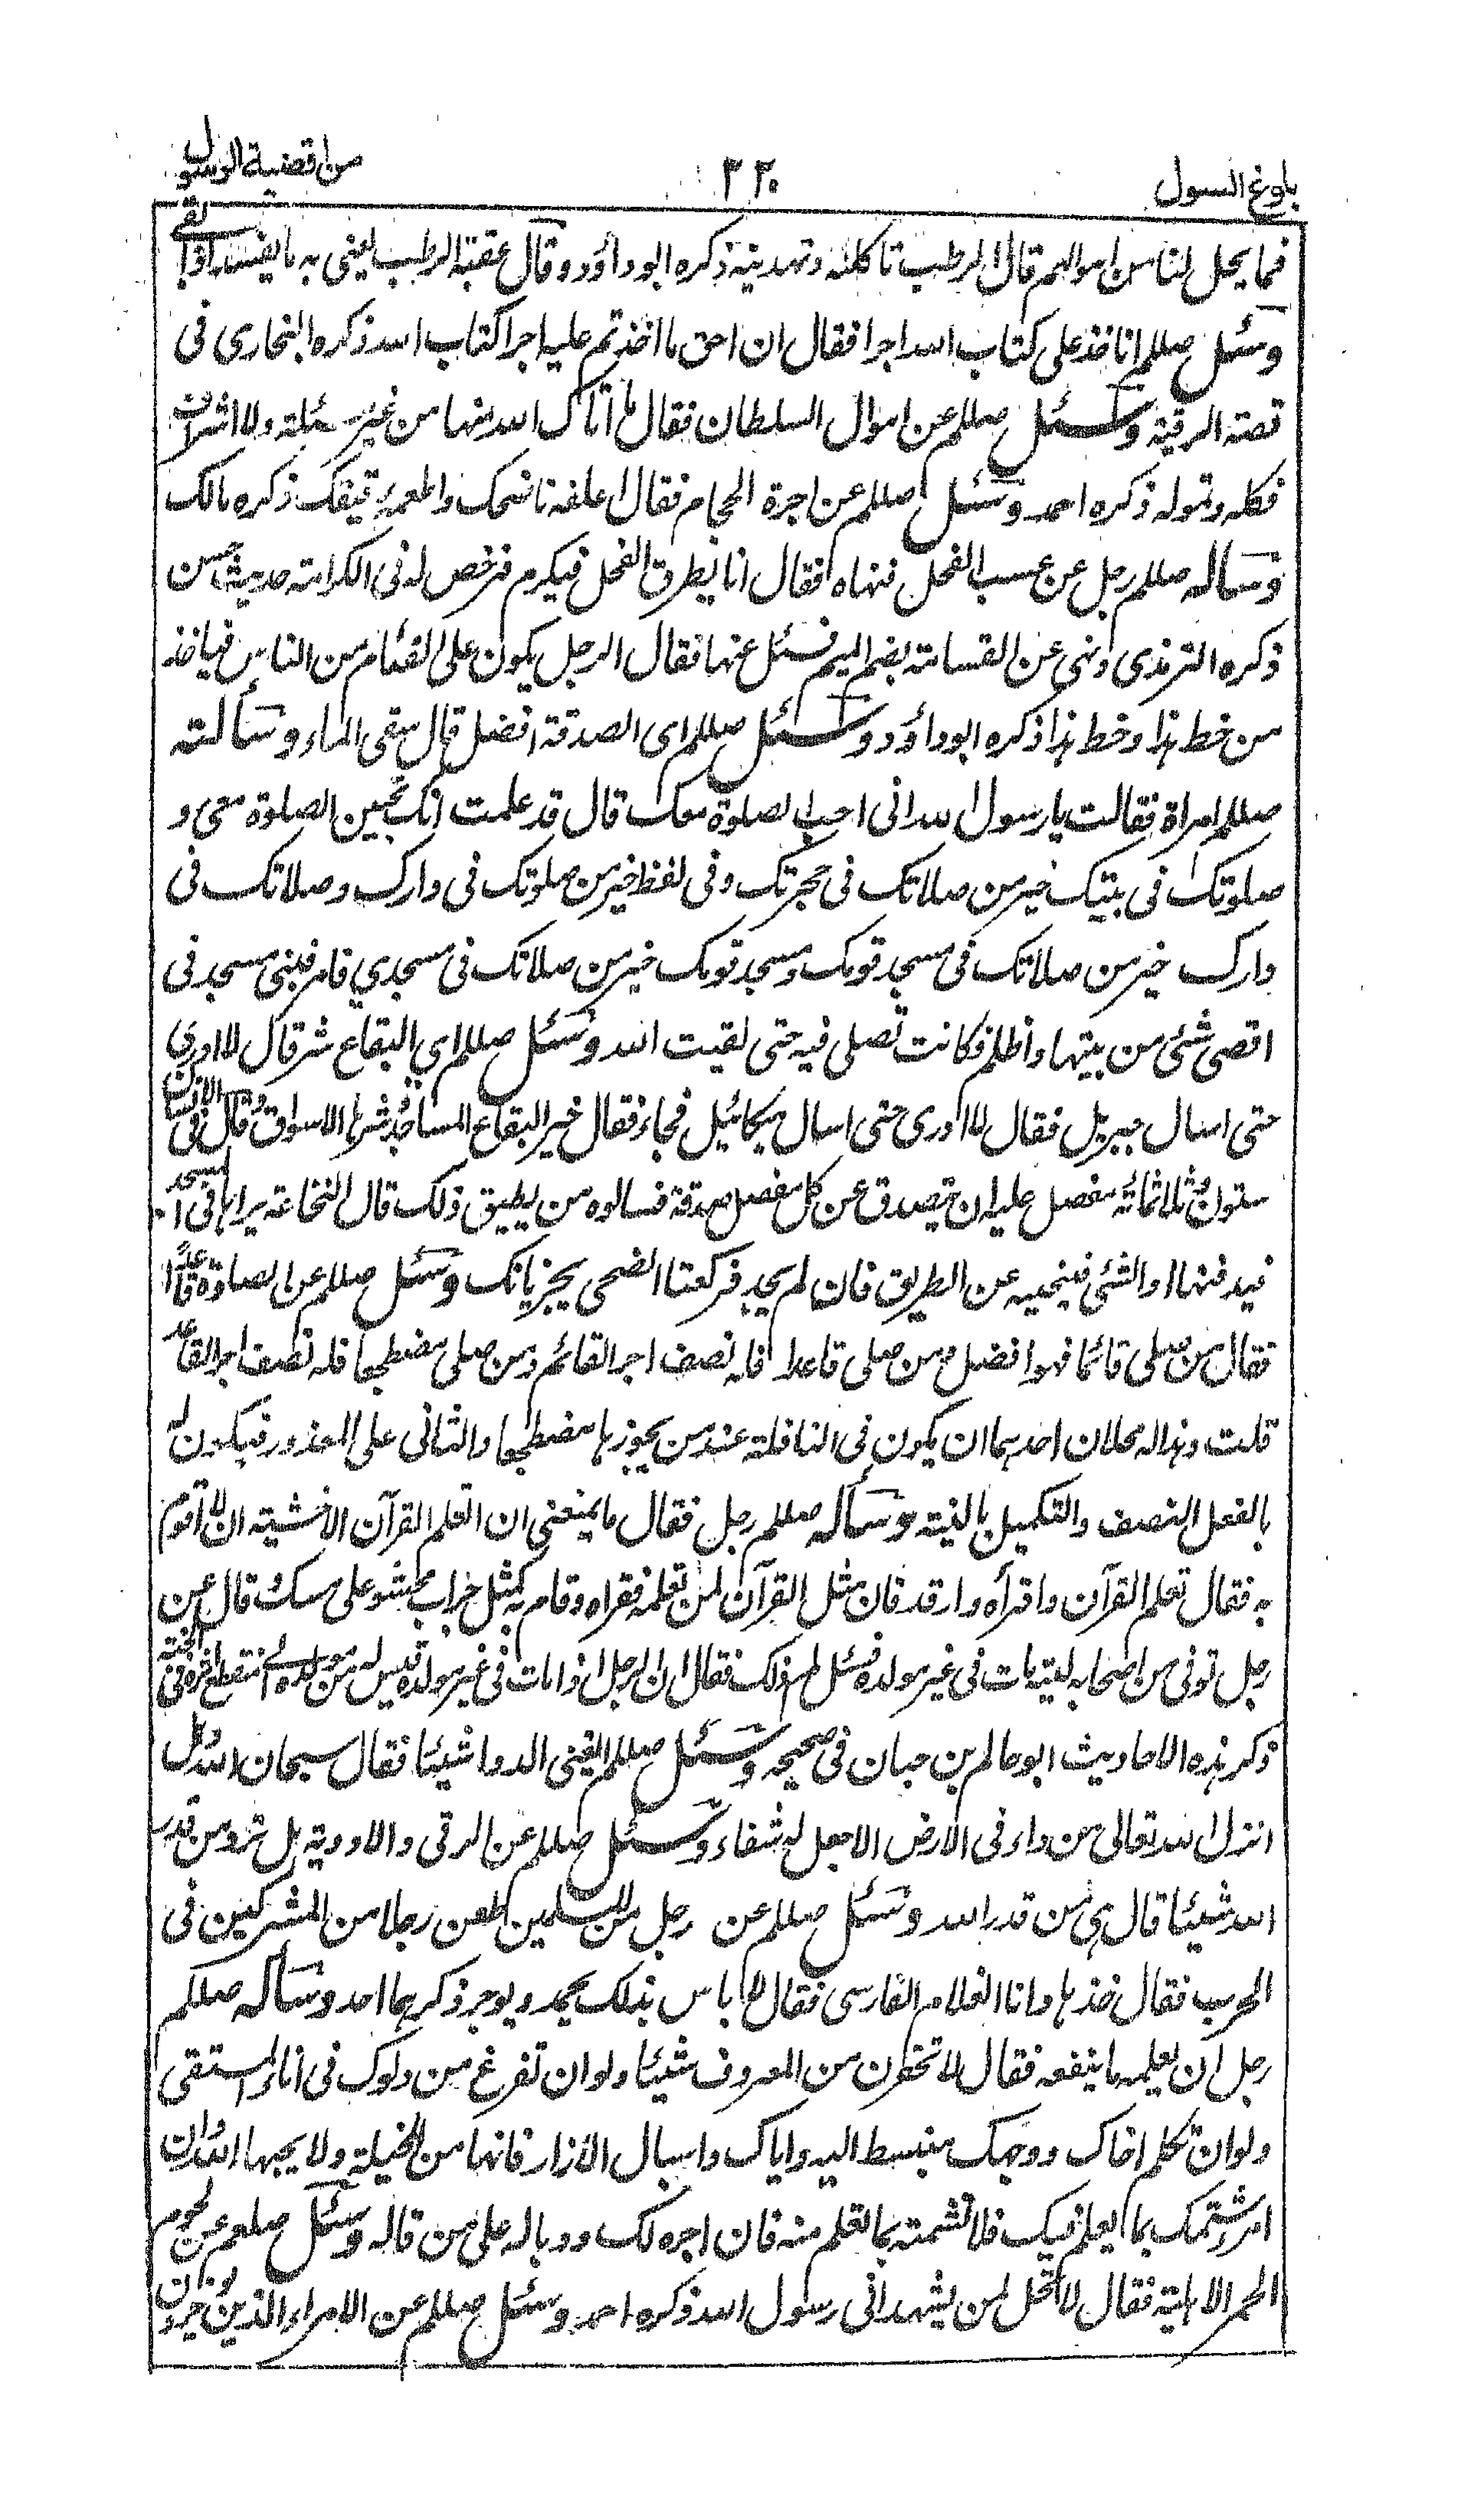 بلوغ السول ٣٢٠ من اقضية الرسول
فما يحل لنا من اموالهم قال الرطب تاكلنه وتهدينه ذكره ابوداؤد وقال عقبة الرطب يعنى به ما يفسد اذا بقى
وسئل صللم انا خذ على كتاب الله اجرا فقال ان احق ما اخذتم عليه اجرا كتاب الله ذكره البخارى فى
قصة الرقية وسئل صللم عن اموال السلطان فقال ما اتاك الله منها من غير مسئلة ولا اشراف
فكله وتموله ذكره احمد وسئل صللم عن اجرة الحجام فقال اعلفه ناضحك واطعمه رقيقك ذكره مالك
وساله صللم رجل عن عسب الفحل فنهاه فقال انا نطرق الفحل فيكرم فرخص له فى الكرامة حديث حسن
ذكره الترمذى ونهى عن القسامة بضم الميم فسئل عنها فقال الرجل يكون على الفئام من الناس فياخذ
من خط هذا وخط هذا ذكره ابوداؤد وسئل صللم اى الصدقة افضل قال سقى الماء وسألته
صللم امراة فقالت يا رسول الله انى احب الصلوة معك قال قد علمت انك تحبين الصلوة معى و
صلوتك فى بيتك خير من صلاتك فى حجرتك وفى لفظ خير من صلوتك فى دارك وصلاتك فى
دارك خير من صلاتك فى مسجد قومك ومسجد قومك خير من صلاتك فى مسجدي فامر فبنى مسجد فى
اقصى شئى من بيتها واظلم فكانت تصلى فيه حتى لقيت الله وسئل صللم اي البقاع شر قال لا ادري
حتى اسال جبريل فقال لا ادرى حتى اسال ميكائيل فجاء فقال خير البقاع المساجد وشرها الاسواق وقال فى الانسان
ستون وثلاثمائة مفصل عليه ان يتصدق عن كل مفصل صدقة فسالوه من يطيق ذلك قال النخاعة يراها فى المسجد
فيدفنها او الشئى فينحيه عن الطريق فان لم يجد فركعتا الضحى يجزيانك وسئل صللم عن الصلوة قاعدا
فقال من صلى قائما فهو افضل ومن صلى قاعدا فله نصف اجر القائم ومن صلى مضطجعا فله نصف اجر القاعد
قلت وهذا له محلان احدهما ان يكون فى النافلة عند من يجوزها مضطجعا والثانى على المعذور فيكون له
بالفعل النصف والتكميل بالنية وسأله صللم رجل فقال ما يمنعنى ان اتعلم القرآن الا خشية ان لا اقوم
به فقال تعلم القرآن واقرأه وارقد فان مثل القرآن لمن تعلمه فقراه وقام به كمثل جراب محشو على مسك وقال عن
رجل توفى من اصحابه ليته مات فى غير مولده فسئل لم ذلك فقال ان الرجل اذا مات فى غير مولده قيس له من مولده الى منقطع اثره فى الجنة
ذكر هذه الاحاديث ابو حاتم بن حبان فى صحيحه وسئل صللم ايغنى الدوا شيئا فقال سبحان الله وهل
انزل الله تعالى من داء فى الارض الا جعل له شفاء وسئل صللم عن الرقى والادوية هل ترد من قدر
الله شيئا قال هى من قدر الله وسئل صللم عن رجل من المسلمين طعن رجلا من المشركين فى
الحرب فقال خذها وانا الغلام الفارسى فقال لا باس بذلك يحمد ويوجر ذكرهما احمد وسأله صللم
رجل ان يعلمه ما ينفعه فقال لا تحقرن من المعروف شيئا ولو ان تفرغ من دلوك فى اناء المستقى
ولو ان تكلم اخاك ووجهك منبسط اليه واياك واسبال الازار فانها من المخيلة ولا يحبها الله وان
امرء شتمك بما يعلم فيك فلا تشتمه بما تعلم منه فان اجره لك ووباله على من قاله وسئل صلعم عن لحوم
الحمر الاهلية فقال لا تحل لمن يشهد انى رسول الله ذكره احمد وسئل صللم عن الامراء الذين يؤخرون